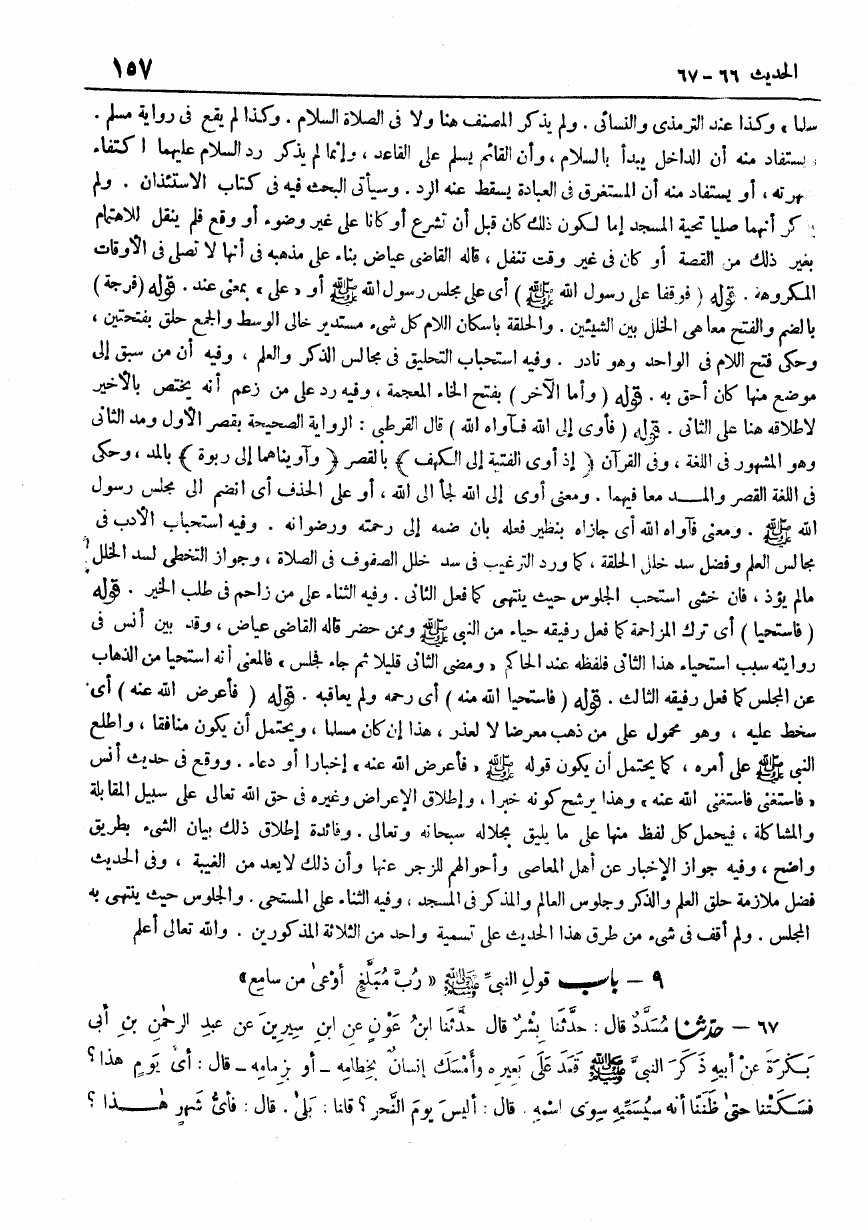 الحديث ٦٦ - ٦٧ ١٥٧
سلما » وكذا عند الترمذى والنسائى . ولم يذكر المصنف هنا ولا فى الصلاة السلام . وكذا لم يقع فى رواية مسلم .
يستفاد منه أن الداخل يبدأ بالسلام ، وأن القائم يسلم على القاعد ، وإنما لم يذكر رد السلام عليهما اكتفاء
هرته ، أو يستفاد منه أن المستغرق فى العبادة يسقط عنه الرد . وسيأتى البحث فيه فى كتاب الاستئذان . ولم
كر أنهما صليا تحية المسجد إما لكون ذلك كان قبل أن تشرع أو كانا على غير وضوء أو وقع فلم ينقل للاهتمام
بغير ذلك من القصة أو كان فى غير وقت تنفل ، قاله القاضى عياض بناء على مذهبه فى أنها لا تصلى فى الأوقات
المكروهة . قوله ( فوقفا على رسول الله ﷺ ) أى على مجلس رسول الله ﷺ أو « على » بمعنى عند . قوله ( فرجة )
بالضم والفتح معا هى الخلل بين الشيئين . والحلقة باسكان اللام كل شىء مستدير خالى الوسط والجمع حلق بفتحتين ،
وحكى فتح اللام فى الواحد وهو نادر . وفيه استحباب التحليق فى مجالس الذكر والعلم ، وفيه أن من سبق إلى
موضع منها كان أحق به . قوله ( وأما الآخر ) بفتح الخاء المعجمة ، وفيه رد على من زعم أنه يختص بالأخير
لاطلاقه هنا على الثانى . قوله ( فأوى إلى الله فآواه الله ) قال القرطبى : الرواية الصحيحة بقصر الأول ومد الثانى
وهو المشهور فى اللغة ، وفى القرآن ﴿ إذ أوى الفتية إلى الكهف ﴾ بالقصر ﴿ وآويناهما إلى ربوة ﴾ بالمد ، وحكى
فى اللغة القصر والمـــد معا فيهما . ومعنى أوى إلى الله لجأ الى الله ، أو على الحذف أى انضم الى مجلس رسول
الله ﷺ . ومعنى فآواه الله أى جازاه بنظير فعله بان ضمه إلى رحمته ورضوانه . وفيه استحباب الأدب فى
مجالس العلم وفضل سد خلل الحلقة ، كما ورد الترغيب فى سد خلل الصفوف فى الصلاة ، وجواز التخطى لسد الخلل
مالم يؤذ ، فان خشى استحب الجلوس حيث ينتهى كما فعل الثانى . وفيه الثناء على من زاحم فى طلب الخير . قوله
( فاستحيا ) أى ترك المزاحمة كما فعل رفيقه حياء من النبى ﷺ وممن حضر قاله القاضى عياض ، وقد بين أنس فى
روايته سبب استحياء هذا الثانى فلفظه عند الحاكم « ومضى الثانى قليلا ثم جاء فجلس » فالمعنى أنه استحيا من الذهاب
عن المجلس كما فعل رفيقه الثالث . قوله ( فاستحيا الله منه ) أى رحمه ولم يعاقبه . قوله ( فأعرض الله عنه ) أى
سخط عليه ، وهو محمول على من ذهب معرضا لا لعذر ، هذا إن كان مسلما ، ويحتمل أن يكون منافقا ، واطلع
النبى ﷺ على أمره ، كما يحتمل أن يكون قوله ﷺ « فأعرض الله عنه » إخبارا أو دعاء . ووقع فى حديث أنس
« فاستغنى فاستغنى الله عنه » وهذا يرشح كونه خبرا ، وإطلاق الإعراض وغيره فى حق الله تعالى على سبيل المقابلة
والمشاكلة ، فيحمل كل لفظ منها على ما يليق بجلاله سبحانه وتعالى . وفائدة إطلاق ذلك بيان الشىء بطريق
واضح ، وفيه جواز الإخبار عن أهل المعاصى وأحوالهم للزجر عنها وأن ذلك لا يعد من الغيبة ، وفى الحديث
فضل ملازمة حلق العلم والذكر وجلوس العالم والمذكر فى المسجد ، وفيه الثناء على المستحى . والجلوس حيث ينتهى به
المجلس . ولم أقف فى شىء من طرق هذا الحديث على تسمية واحد من الثلاثة المذكورين . والله تعالى أعلم
٩ - باب قولِ النبىِّ ﷺ « رُبَّ مُبَلَّغٍ أوْعىٰ من سامِع »
٦٧ - حدّثنا مُسَدَّدٌ قال : حدَّثَنا بِشْرٌ قال حدَّثَنا ابنُ عَوْنٍ عنِ ابنِ سِيرِينَ عن عبدِ الرحمٰنِ بنِ أبى
بَكْرَةَ عنْ أبيهِ ذَكَرَ النبىَّ ﷺ قَعَدَ عَلَى بَعِيرِهِ وأَمْسَكَ إنسانٌ بخِطامِهِ - أو بزِمامِهِ - قال : أىُّ يَوْمٍ هذا ؟
فسَكَتْنا حتىٰ ظَنَنَّا أنه سيُسَمِّيهِ سِوَى اسْمِهِ . قال : أليسَ يومَ النَّحرِ ؟ قلنا : بَلىٰ . قال : فأىُّ شَهرٍ هٰـــذا ؟